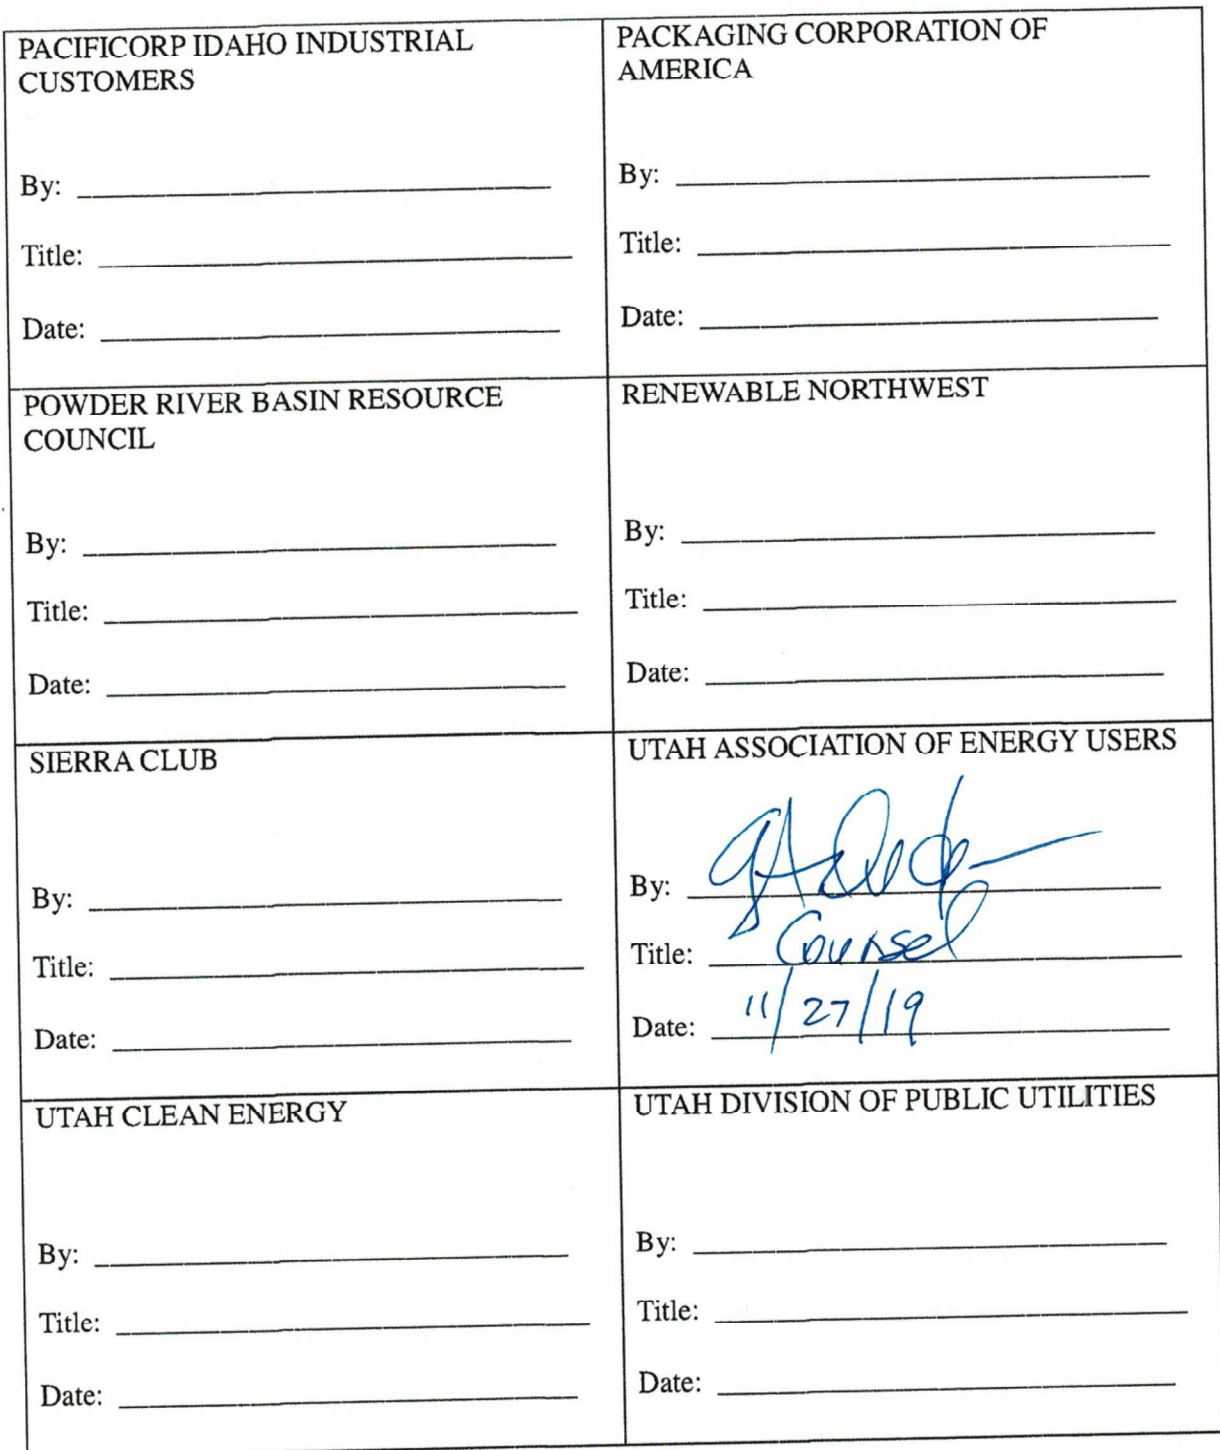 PACIFICORP IDAHO INDUSTRIAL
CUSTOMERS
By:
Title:
Date:
PACKAGING CORPORATION OF
AMERICA
By:
Title:
Date:
POWDER RIVER BASIN RESOURCE
COUNCIL
By:
Title:
Date:
RENEWABLE NORTHWEST
By:
Title:
Date:
SIERRA CLUB
By:
Title:
Date:
UTAH ASSOCIATION OF ENERGY USERS
By:
Title: Counsel
Date: 11/27/19
UTAH CLEAN ENERGY
By:
Title:
Date:
UTAH DIVISION OF PUBLIC UTILITIES
By:
Title:
Date: